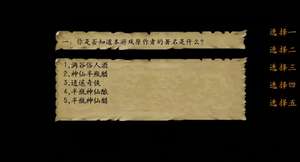 一：你是否知道本游戏原作者的著名是什么？
1、满谷俗人酒
2、神仙半瓶醋
3、逍遥奇侠
4、半瓶神仙酿
5、半瓶神仙醋
选择一
选择二
选择三
选择四
选择五